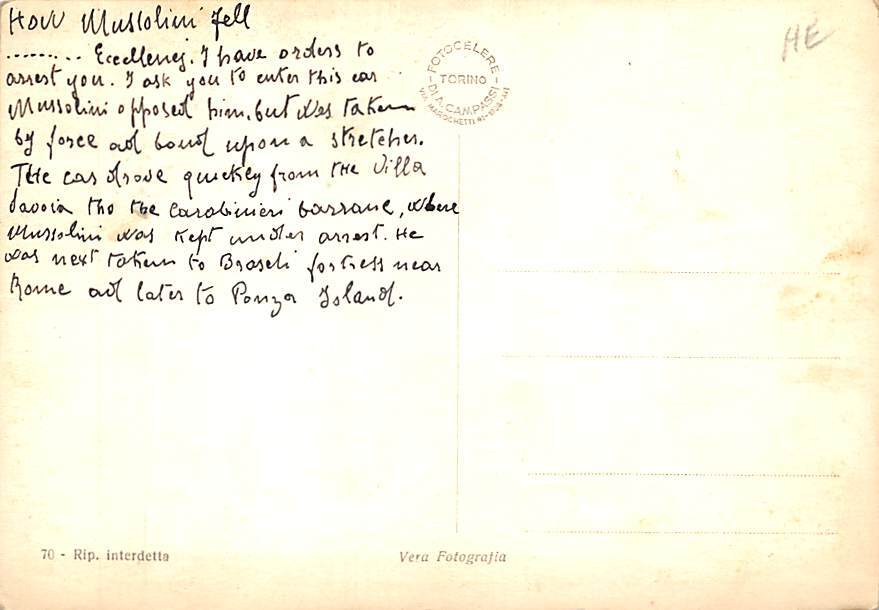 How Mussolini fell
........ Eccellency. I have orders to
arrest you. I ask you to enter this car
Mussolini opposed him, but was taken
by force ad bound upon a stretcher.
The car drove quickly from the Villa
Savoia tho the Carabinieri barrane, where
Mussolini was kept under arrest. He
was next taken to Braschi fortress near
Rome ad later to Ponza Island.
HE
FOTOCELERE
TORINO
DI A. CAMPASSI
VIA MAROCHETTI
70 - Rip. interdetta
Vera Fotografia